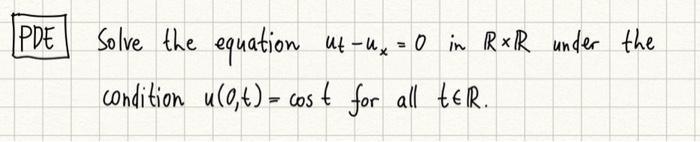 PDE Solve the equation u_t - u_x = 0 in ℝ×ℝ under the
condition u(0,t) = cos t for all t∈ℝ.